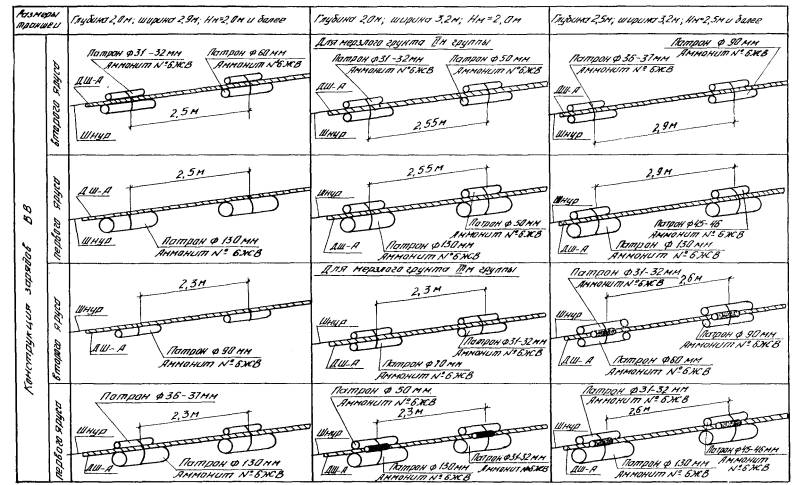 Размеры траншеи
Глубина 2,0м; ширина 2,9м; Нм=2,0м и более
Глубина 2,0м; ширина 3,2м; Нм=2,0м
Глубина 2,5м; ширина 3,2м; Нм=2,5м и более
Конструкция зарядов ВВ
второго яруса
Патрон ф31-32мм
Аммонит №6ЖВ
Патрон ф60мм
Аммонит №6ЖВ
ДШ-А
Шнур
2,5м
Для мерзлого грунта
группы
Патрон ф31-32мм
Аммонит №6ЖВ
Патрон ф50мм
Аммонит №6ЖВ
ДШ-А
Шнур
2,55м
Патрон ф90мм
Аммонит №6ЖВ
Патрон ф36-37мм
Аммонит №6ЖВ
ДШ-А
Шнур
2,9м
первого яруса
2,5м
ДШ-А
Шнур
Патрон ф130мм
Аммонит №6ЖВ
2,55м
Шнур
ДШ-А
Патрон ф50мм
Аммонит №6ЖВ
Патрон ф130мм
Аммонит №6ЖВ
2,9м
Шнур
ДШ-А
Патрон ф45-46
Аммонит №6ЖВ
Патрон ф130мм
Аммонит №6ЖВ
второго яруса
2,3м
Шнур
ДШ-А
Патрон ф90мм
Аммонит №6ЖВ
Для мерзлого грунта
группы
2,3м
Шнур
ДШ-А
Патрон ф31-32мм
Аммонит №6ЖВ
Аммонит №6ЖВ
Патрон ф31-32мм
Аммонит №6ЖВ
2,6м
Шнур
ДШ-А
Патрон ф90мм
Аммонит №6ЖВ
Патрон ф60мм
Аммонит №6ЖВ
первого яруса
Патрон ф36-37мм
Аммонит №6ЖВ
2,3м
Шнур
ДШ-А
Патрон ф130мм
Аммонит №6ЖВ
Патрон ф50мм
Аммонит №6ЖВ
2,3м
Шнур
ДШ-А
Патрон ф130мм
Аммонит №6ЖВ
Патрон ф31-32мм
Аммонит №6ЖВ
Патрон ф31-32
Аммонит №6ЖВ
2,6м
Шнур
ДШ-А
Патрон ф130мм
Аммонит №6ЖВ
Патрон ф45-46мм
Аммонит №6ЖВ